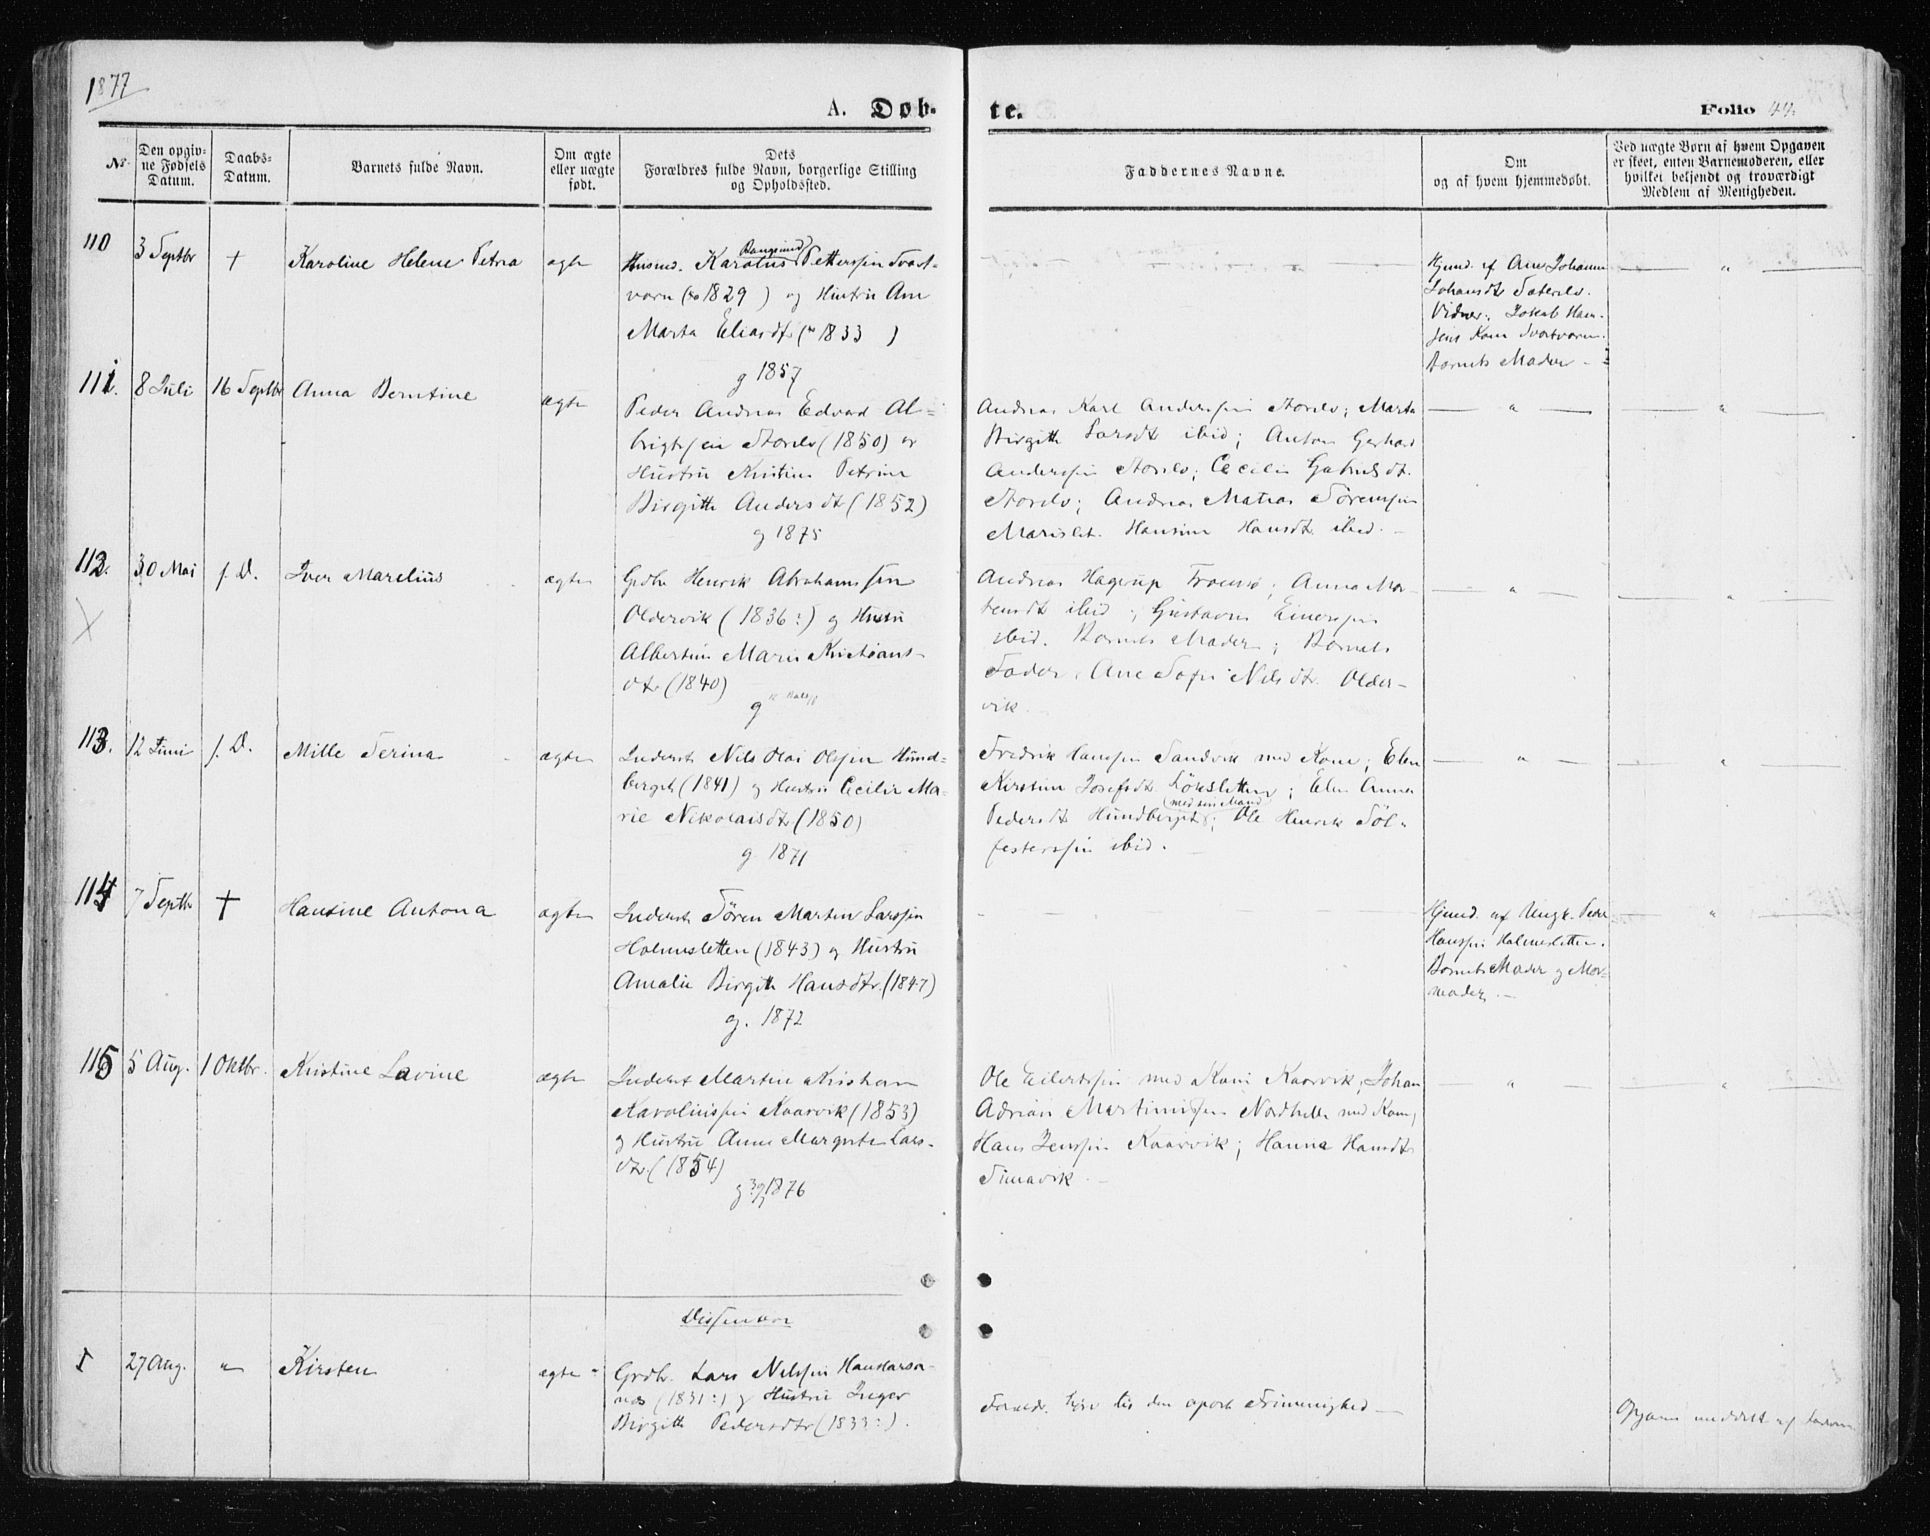 1877
A. Døb-
te.
Folio 44.
No.
Den opgiv-
ne Fødsels
Datum.
Daabs-
Datum.
Barnets fulde Navn.
Om ægte
eller uægte
født.
Dets
Forældres fulde Navn, borgerlige Stilling
og Opholdssted.
Faddernes Navne.
Om
og af hvem hjemmedøbt.
Ved uægte Børn af hvem Opgaven
er skeet, enten Barnemoderen, eller
hvilket bekjendt og troværdigt
Medlem af Menigheden.
110
3 Septbr
+
Karoline Helene Petra
ægte
Husmd. Karolus Pettersen Svart-
vorn (1829) og Hustru Ane
Marta Eliasdtr (1833)
g 1857
Hjmd. af Ane Johanne
Johansdtr
Vidner: Jakob Han-
sens Kone Svartvorn.
Barnets Moder -
"
111.
8 Juli
16 Septbr
Anna Berntine
ægte
Peder Andreas Edvad Al-
brigtsen Storelv (1850) og
Hustru Kristine Petrine
Birgitte Andersdtr (1852)
g 1875
Andreas Karl Anderssen Storelv; Marta
Birgitte Larsdtr ibid; Anton Gerhard
Anderssen Storelv; Cecilie Gabrielsdtr.
Storelv; Andreas Matias Sørenssen
Marislet. Hansine Hansdtr ibid. -
"
"
112.
30 Mai
s. D.
Iver Marelius
ægte
Grdbr Henrik Abrahamssen
Oldervik (1836:) og Hustru
Albertine Marie Kristians-
dtr (1840)
g
Andreas Hagerup Tromsø; Anna Mor-
tensdtr ibid; Gustava Einerssen
ibid. Barnets Moder; Barnets
Fader, Ane Sofie Nilsdtr. Older-
vik
"
"
113.
12 Juni
s. D.
Mille Serina
ægte
Inderst Nils Olai Olssen Hund-
berget (1841) og Hustru Cecilie Ma-
rie Nikolaisdtr (1850)
g 1871
Fredrik Hanssen Sandvik med Kone; Elen
Kirstine Josefsdtr Løkslettten; Elen Anna
(med sin Mand)
Pedersdtr Hundberget; Ole Henrik Søl-
festerssen ibid.
"
"
114
7 Septbr
+
Hansine Antona
ægte
Inderst Sören Martin Larssen
Holmesletten (1843) og Hustru
Amalie Birgitte Hansdtr. (1847)
g. 1872
Hjmd. af Ungk. Peder
Hanssen Holmesletten.
Barnets Moder og Mor-
moder. -
"
115
5 Aug.
1 Oktbr.
Kristine Lovine
ægte
Inderst Martin Kristian
Karoliussen Kaarvik (1853)
og Hustru Anne Margrete Lars-
dtr (1854)
g 1876
Ole Eilertssen med Kone Kaarvik; Johan
Adrian Martinussen Nordhella med Kone,
Hans Jenssen Kaarvik; Hanna Hansdtr
Simavik. -
"
"
Dissentere
I
27 Aug.
"
Kirsten
ægte
Grdbr. Lars Nilssen Hanslarsa-
næs (1831:) og Hustru Inger
Birgitte Pedersdtr (1833:).
Forældr. høre til den apost. Frimenighed -
Opgaven meddelt af Faderen